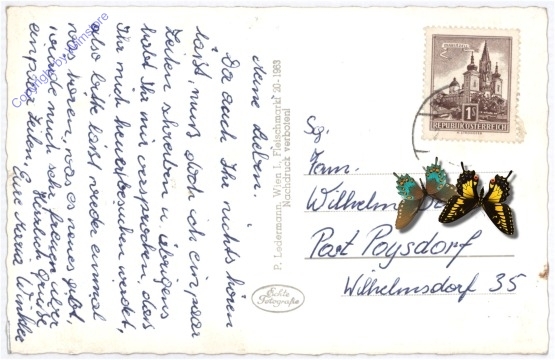 Meine Lieben.
Da auch Ihr nichts hören
lässt, muss doch ich ein paar
Zeilen schreiben u. übrigens
habt Ihr mir versprochen, dass
Ihr mich heuer besuchen werdet,
also bitte lasst wieder einmal
was hören, was es neues gibt,
würde mich sehr freuen über
ein paar Zeilen. Herzlich Grüsst
Eure Maria Winkler
P. Ledermann, Wien I., Fleischmarkt 20 - 1963
Nachdruck verboten!
Echte
Fotografie
1S
REPUBLIK ÖSTERREICH
Sg.
Fam.
Wilhelm
Post Poysdorf
Wilhelmsdorf 35
Copyright by Delmstore